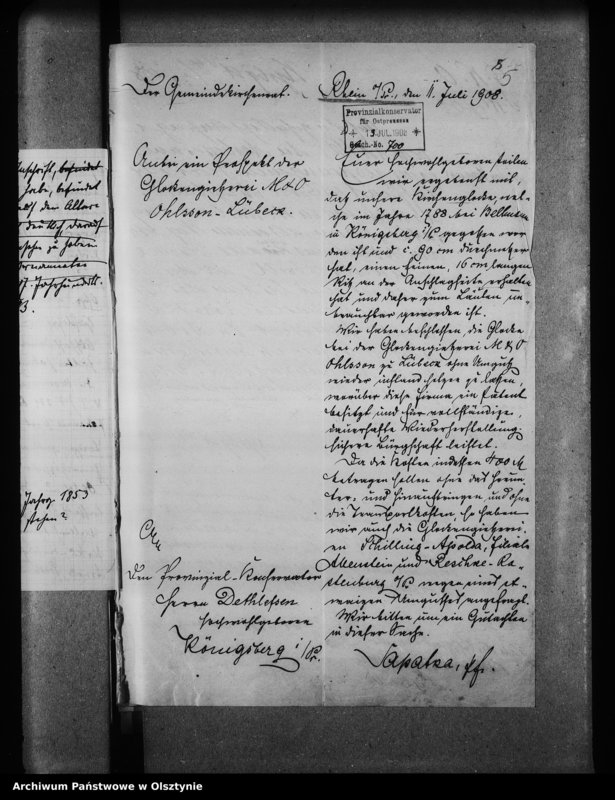 5
Der Gemeindekirchenrat.
Rhein O/Pr., den 11. Juli 1908.
Provinzialkonservator
für Ostpreussen
13 JUL. 1908
Gesch.-No. 700
Anbei ein Prospekt der
Glockengießerei M & O
Ohlsson-Lübeck.
Euer Hochwohlgeboren teilen
wir ergebenst mit,
daß unsere Kirchenglocke, wel-
che im Jahre 1788 bei
zu Königsberg i/P gegossen wor
den ist und c. 90 cm Durchmesser
hat, einen feinen, 16 cm langen
Riß an der Anschlagseite erhalten
hat und daher zum Läuten un-
brauchbar geworden ist.
Wir haben beschlossen, die Glocke
bei der Glockengießerei M & O
Ohlsson zu Lübeck ohne Umguß
wieder instand setzen zu lassen,
worüber diese Firma ein Patent
besitzt und für vollständige,
dauerhafte Wiederherstellung
sichere Bürgschaft leistet.
Da die Kosten indessen 400 M
betragen sollen ohne das Herun-
ter- und Hinaufbringen und ohne
die Transportkosten, so haben
wir auch die Glockengießerei-
en Schilling-Apolda, Filiale
Allenstein und Reschke-Ra-
stenburg O/P wegen eines et-
waigen Umgusses angefragt.
Wir bitten um ein Gutachten
in dieser Sache.
An
den Provinzial-Konservator
Herrn Dethlefsen
Hochwohlgeboren
Königsberg i/Pr.
Inschrift, befindet
habe, befindet
Altare
zu haben
17. Jahrhundert
Jahre 1853
stehen?
Archiwum Państwowe w Olsztynie